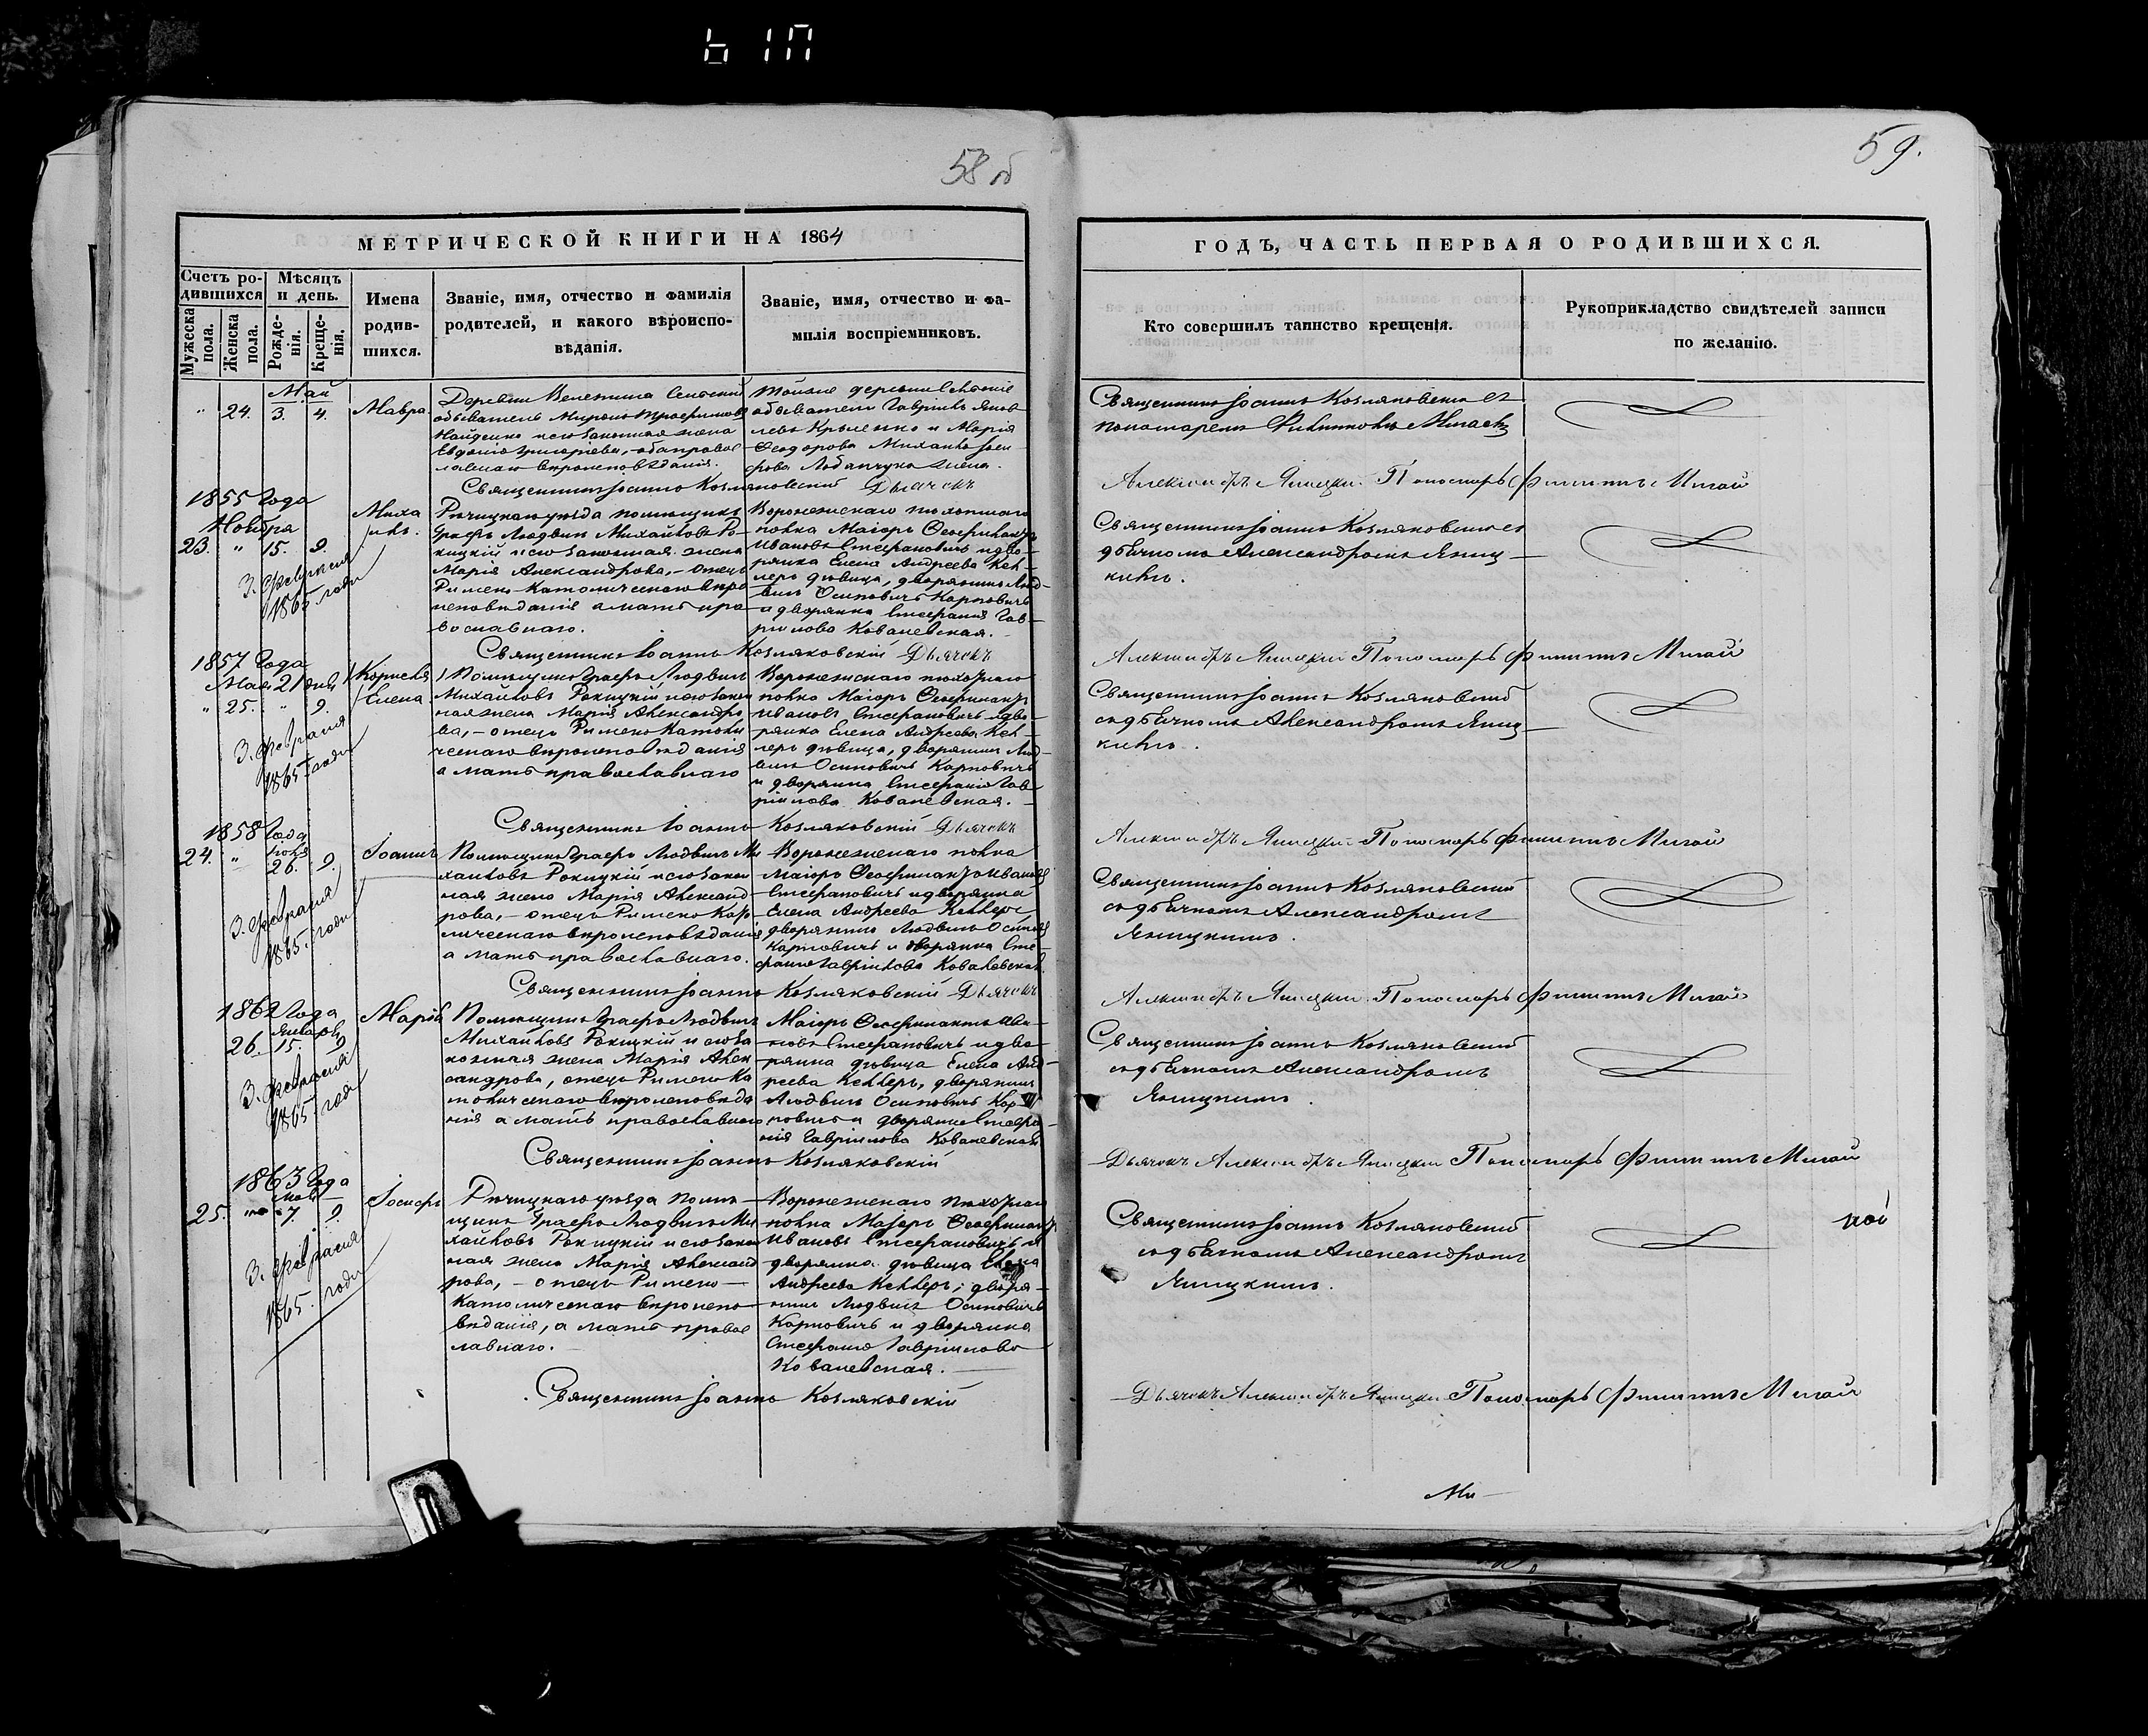 58 об
59.
МЕТРИЧЕСКОЙ КНИГИ НА 1864
Счетъ родившихся
Мѣсяцъ и день.
Мужеска пола.
Женска пола.
Рожденія.
Крещенія.
Имена родившихся.
Званіе, имя, отчество и фамилія
родителей, и какого вѣроиспо-
вѣданія.
Званіе, имя, отчество и фа-
милія воспріемниковъ.
ГОДЪ, ЧАСТЬ ПЕРВАЯ О РОДИВШИХСЯ.
Кто совершилъ таинство крещенія.
Рукоприкладство свидѣтелей записи
по желанію.
Май
" 24. 3. 4.
Мавра
Деревни
обыватель Миронъ Трофимовъ
и его законная жена
Евдокія Григоріева, - оба православ
лавнаго вѣроисповѣданія.
той же деревни
обыватель Гавріилъ Яков
левъ и Марія
Ѳеодорова
жена.
Священникъ Іоаннъ Козляковскій съ
пономаремъ
Священникъ Іоаннъ Козляковскій Дьячекъ
Александръ Пономарь Филиппъ Мигай
1855 Года
Ноября
23. " 15. 9.
3. Февраля
1865. года
Миха
илъ.
Рѣчицкаго уѣзда помѣщикъ
Графъ Людвикъ Михайловъ Ро-
кицкій и его законная жена
Марія Александрова, - отецъ
Римско-Католическаго вѣро
исповѣданія а мать пра
вославнаго.
Воронежскаго пѣхотнаго
полка Маіоръ
Ивановъ Стефановичъ и дво-
рянка Елена Андреева Кел-
леръ дѣвица, дворянинъ Люд-
викъ Осиповичъ Карповичъ
и дворянка Стефанія Гав-
риилова Ковалевская.
Священникъ Іоаннъ Козляковскій съ
дьячкомъ Александромъ Яниц-
кимъ.
Священникъ Іоаннъ Козляковскій Дьячекъ
Александръ Яницкій Пономарь Филиппъ Мигай
1857 Года
Мая 21 дня
" 25. " 9.
3. Февраля
1865 года
Елена
Помѣщикъ Графъ Людвикъ
Михайловъ Рокицкій и его закон
ная жена Марія Александро
ва, - отецъ Римско Католи
ческаго вѣроисповѣданія
а мать православнаго
Воронежскаго пѣхотнаго
полка Маіоръ
Ивановъ Стефановичъ и дво-
рянка Елена Андреева Кел-
леръ дѣвица, дворянинъ Люд-
викъ Осиповичъ Карповичъ
и дворянка Стефанія Гав-
риилова Ковалевская.
Священникъ Іоаннъ Козляковскій
съ дьячкомъ Александромъ Яниц-
кимъ.
Священникъ Іоаннъ Козляковскій Дьячекъ
Александръ Яницкій Пономарь Филиппъ Мигай
1858 Года
24. " 26. 9.
3. Февраля
1865. года
Іоаннъ
Помѣщикъ Графъ Людвикъ Ми
хайловъ Рокицкій и его закон
ная жена Марія Александ
рова, - отецъ Римско Като
лическаго вѣроисповѣданія
а мать православнаго.
Воронежскаго полка
Маіоръ
Стефановичъ и дворянка
Елена Андреева Келлеръ,
дворянинъ Людвикъ
Карповичъ и дворянка Сте-
фанія Гавріилова Ковалевская.
Священникъ Іоаннъ Козляковскій
съ дьячкомъ Александромъ
Яницкимъ.
Священникъ Іоаннъ Козляковскій Дьячекъ
Александръ Яницкій Пономарь Филиппъ Мигай
1862 Года
Января
26. 15. 9
3. Февраля
1865. года
Марія
Помѣщикъ Графъ Людвикъ
Михайловъ Рокицкій и его за
конная жена Марія Алек
сандрова, отецъ Римско Ка
толическаго вѣроисповѣда
нія а мать православнаго
Маіоръ
новъ Стефановичъ и дво-
рянка дѣвица Елена Анд-
реева Келлеръ, дворянинъ
Людвикъ Осиповичъ Кар-
повичъ и дворянка Стефа-
нія Гавріилова Ковалевская
Священникъ Іоаннъ Козляковскій
съ дьячкомъ Александромъ
Яницкимъ.
Священникъ Іоаннъ Козляковскій
Дьячекъ Александръ Яницкій Пономарь Филиппъ Мигай
1863 Года
25. 7. 9.
3. Февраля
1865. года
Іосифъ
Рѣчицкаго уѣзда помѣ-
щикъ Графъ Людвикъ Ми
хайловъ Рокицкій и его закон
ная жена Марія Александ
рова, - отецъ Римско-
Католическаго вѣроиспо-
вѣданія, а мать правос
лавнаго.
Воронежскаго пѣхотнаго
полка Маіоръ
Ивановъ Стефановичъ и
дворянка дѣвица Елена
Андреева Келлеръ, дворя-
нинъ Людвикъ Осиповичъ
Карповичъ и дворянка
Стефанія Гавріилова
Ковалевская.
Священникъ Іоаннъ Козляковскій
съ дьячкомъ Александромъ
Яницкимъ.
Священникъ Іоаннъ Козляковскій
Дьячекъ Александръ Яницкій Пономарь Филиппъ Мигай
Ми-